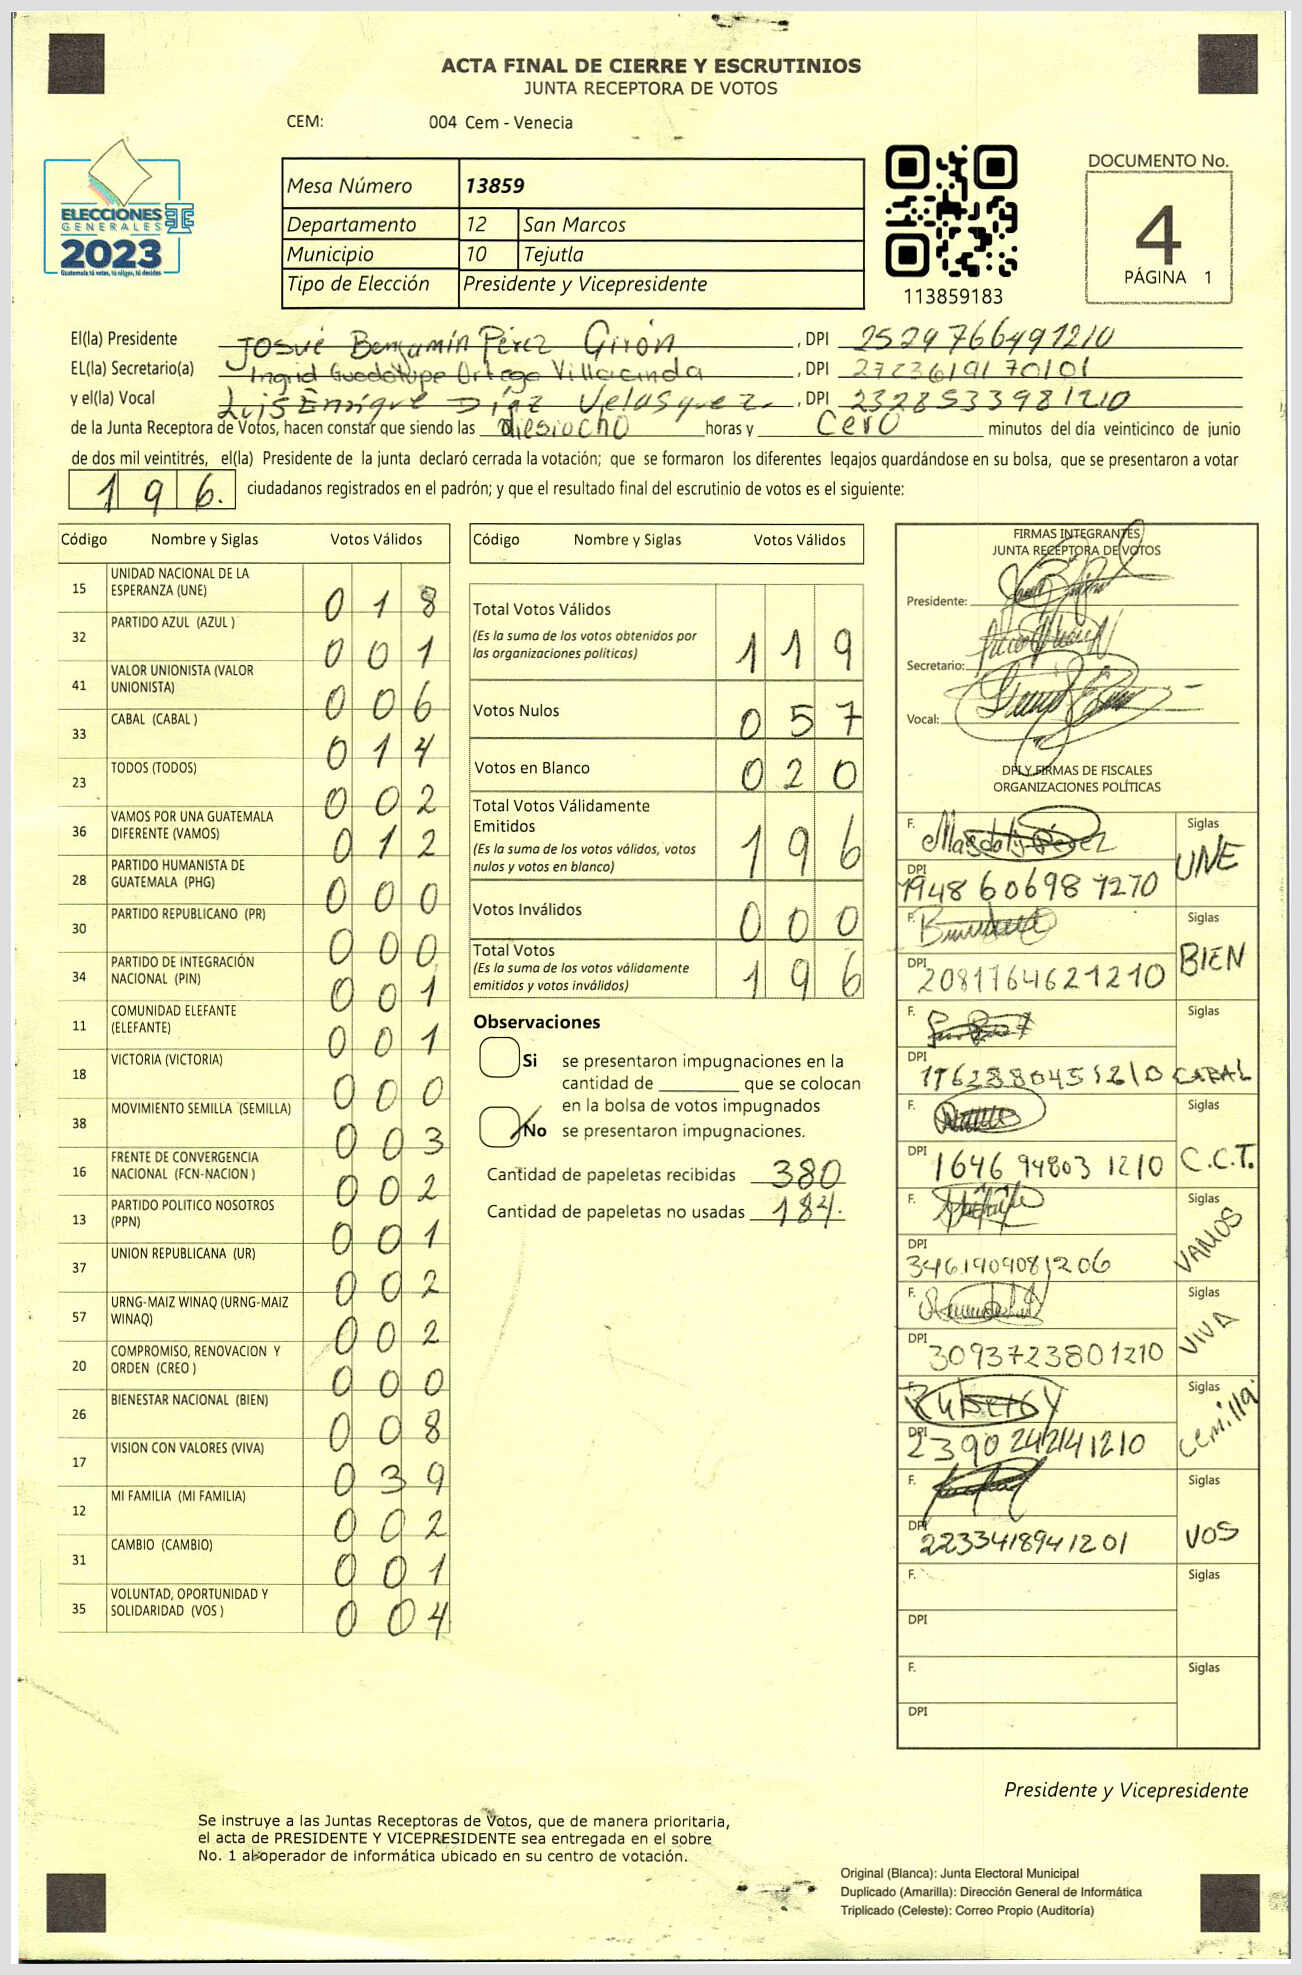 ACTA FINAL DE CIERRE Y ESCRUTINIOS
JUNTA RECEPTORA DE VOTOS
CEM: 004 Cem - Venecia
ELECCIONES
GENERALES
2023
Guatemala tú votas, tú eliges, tú decides
Mesa Número 13859
Departamento 12 San Marcos
Municipio 10 Tejutla
Tipo de Elección Presidente y Vicepresidente
113859183
DOCUMENTO No.
4
PÁGINA 1
El(la) Presidente Josué Benjamín Pérez Girón , DPI 2529766491210
EL(la) Secretario(a) Ingrid Guadalupe Ortego Villacinda , DPI 2723619170101
y el(la) Vocal Luis Enrique Díaz Velasquez. , DPI 2328533981210
de la Junta Receptora de Votos, hacen constar que siendo las diesiocho horas y Cero minutos del día veinticinco de junio
de dos mil veintitrés, el(la) Presidente de la junta declaró cerrada la votación; que se formaron los diferentes legajos quardándose en su bolsa, que se presentaron a votar
196. ciudadanos registrados en el padrón; y que el resultado final del escrutinio de votos es el siguiente:
Código Nombre y Siglas Votos Válidos
15 UNIDAD NACIONAL DE LA ESPERANZA (UNE) 0 1 8
32 PARTIDO AZUL (AZUL ) 0 0 1
41 VALOR UNIONISTA (VALOR UNIONISTA) 0 0 6
33 CABAL (CABAL ) 0 1 4
23 TODOS (TODOS) 0 0 2
36 VAMOS POR UNA GUATEMALA DIFERENTE (VAMOS) 0 1 2
28 PARTIDO HUMANISTA DE GUATEMALA (PHG) 0 0 0
30 PARTIDO REPUBLICANO (PR) 0 0 0
34 PARTIDO DE INTEGRACIÓN NACIONAL (PIN) 0 0 1
11 COMUNIDAD ELEFANTE (ELEFANTE) 0 0 1
18 VICTORIA (VICTORIA) 0 0 0
38 MOVIMIENTO SEMILLA (SEMILLA) 0 0 3
16 FRENTE DE CONVERGENCIA NACIONAL (FCN-NACION ) 0 0 2
13 PARTIDO POLITICO NOSOTROS (PPN) 0 0 1
37 UNION REPUBLICANA (UR) 0 0 2
57 URNG-MAIZ WINAQ (URNG-MAIZ WINAQ) 0 0 2
20 COMPROMISO, RENOVACION Y ORDEN (CREO ) 0 0 0
26 BIENESTAR NACIONAL (BIEN) 0 0 8
17 VISION CON VALORES (VIVA) 0 3 9
12 MI FAMILIA (MI FAMILIA) 0 0 2
31 CAMBIO (CAMBIO) 0 0 1
35 VOLUNTAD, OPORTUNIDAD Y SOLIDARIDAD (VOS ) 0 0 4
Código Nombre y Siglas Votos Válidos
Total Votos Válidos
(Es la suma de los votos obtenidos por
las organizaciones políticas) 1 1 9
Votos Nulos 0 5 7
Votos en Blanco 0 2 0
Total Votos Válidamente
Emitidos
(Es la suma de los votos válidos, votos
nulos y votos en blanco) 1 9 6
Votos Inválidos 0 0 0
Total Votos
(Es la suma de los votos válidamente
emitidos y votos inválidos) 1 9 6
Observaciones
Si se presentaron impugnaciones en la
cantidad de ________ que se colocan
en la bolsa de votos impugnados
No se presentaron impugnaciones.
Cantidad de papeletas recibidas 380
Cantidad de papeletas no usadas 184.
FIRMAS INTEGRANTES
JUNTA RECEPTORA DE VOTOS
Presidente:
Secretario:
Vocal:
DPI Y FIRMAS DE FISCALES
ORGANIZACIONES POLÍTICAS
F. Magdaly Pérez Siglas
DPI 1948606987270 UNE
F. Siglas
DPI 2081764621210 BIEN
F. Siglas
DPI 1762880451210 CABAL
F. Siglas
DPI 1646 94803 1210 C.C.T.
F. Siglas
DPI 3461909081206 VAMOS
F. Siglas
DPI 3093723801210 VIVA
F. Siglas
DPI 2390242141210 Cemilla
F. Siglas
DPI 2233418941201 VOS
F. Siglas
DPI
F. Siglas
DPI
Presidente y Vicepresidente
Se instruye a las Juntas Receptoras de Votos, que de manera prioritaria,
el acta de PRESIDENTE Y VICEPRESIDENTE sea entregada en el sobre
No. 1 al operador de informática ubicado en su centro de votación.
Original (Blanca): Junta Electoral Municipal
Duplicado (Amarilla): Dirección General de Informática
Triplicado (Celeste): Correo Propio (Auditoría)